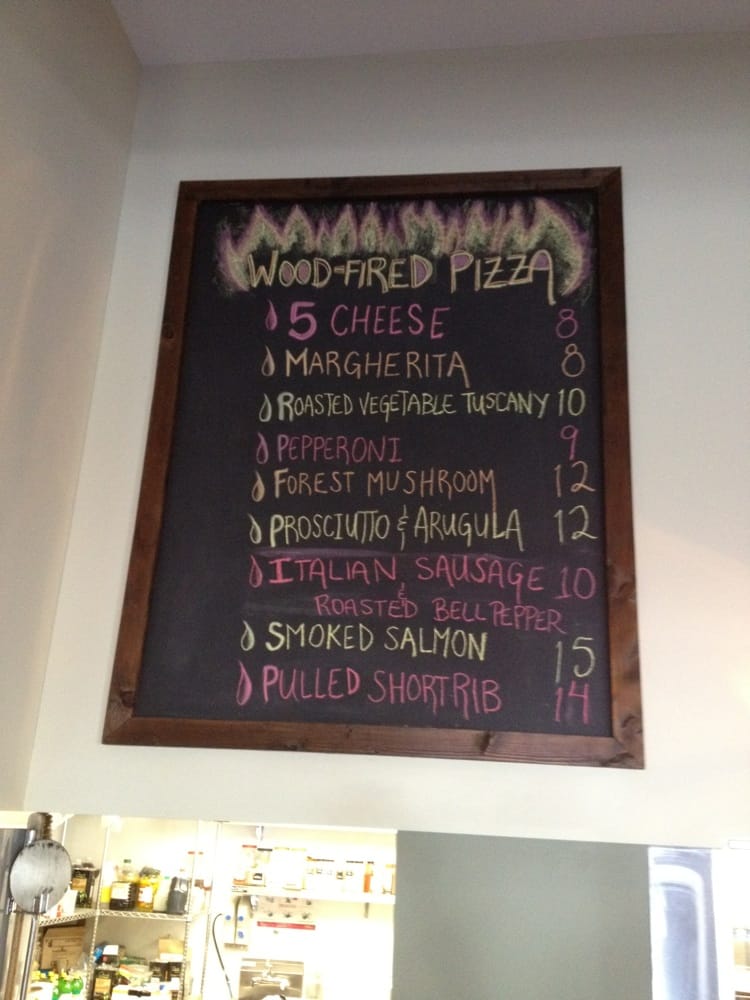 WOOD-FIRED PIZZA
5 CHEESE 8
MARGHERITA 8
ROASTED VEGETABLE TUSCANY 10
PEPPERONI 9
FOREST MUSHROOM 12
PROSCIUTTO & ARUGULA 12
ITALIAN SAUSAGE 10
& ROASTED BELL PEPPER
SMOKED SALMON 15
PULLED SHORTRIB 14